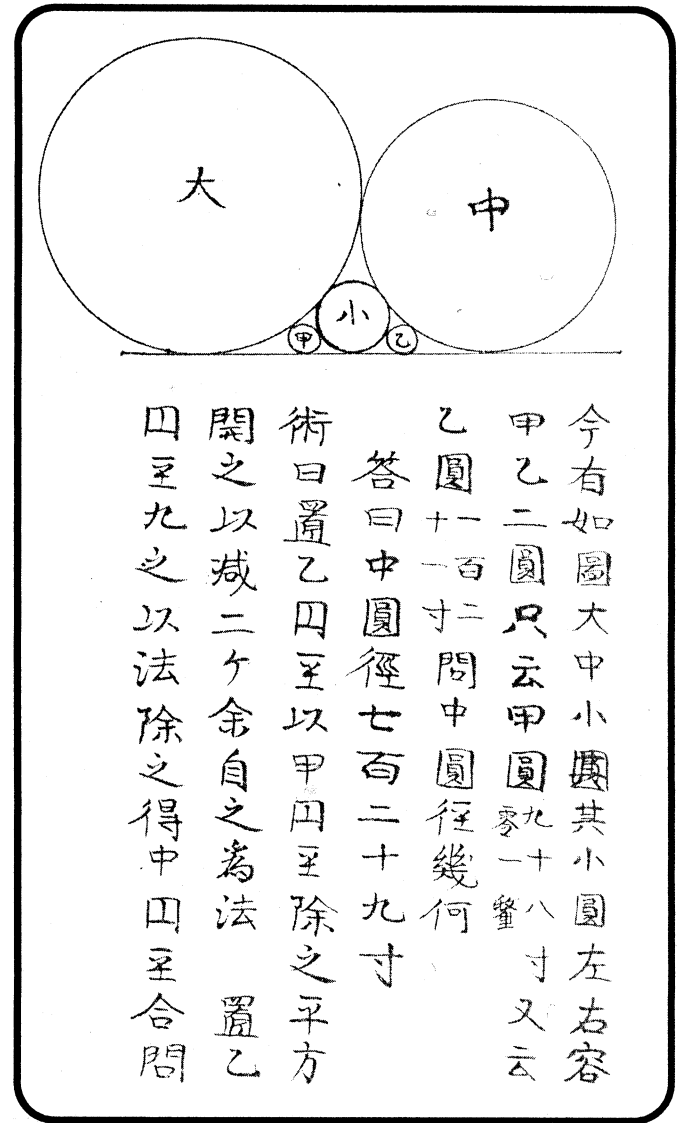 大
中
小
甲
乙
今有如圖大中小圓其小圓左右容
甲乙二圓只云甲圓九十八寸零一釐又云
乙圓一百二十一寸問中圓径幾何
答曰中圓徑七百二十九寸
術曰置乙円至以甲円至除之平方
開之以减二ケ余自之為法　置乙
円至九之以法除之得中円至合問